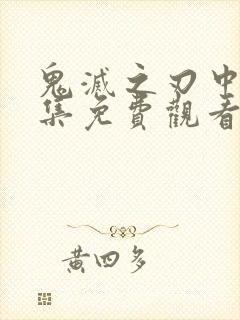 鬼滅之刃中
集免費觀看
黃四多